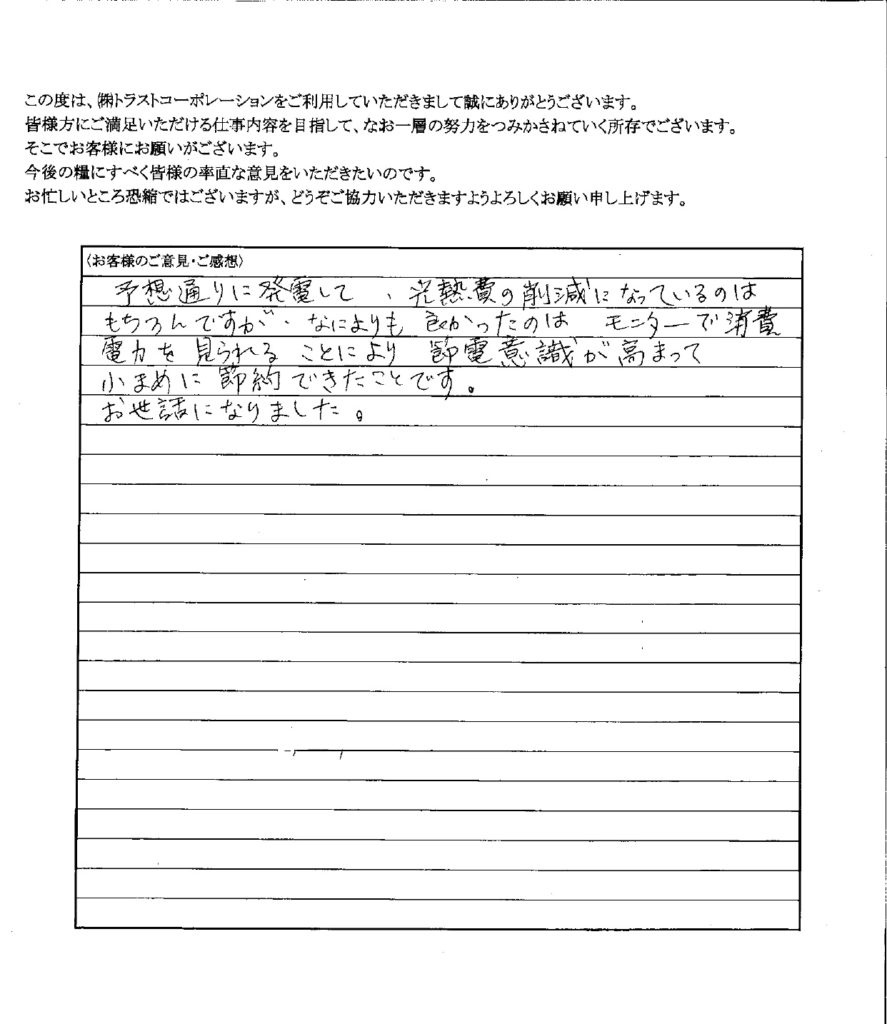 この度は、㈱トラストコーポレーションをご利用していただきまして誠にありがとうございます。
皆様方にご満足いただける仕事内容を目指して、なお一層の努力をつみかさねていく所存でございます。
そこでお客様にお願いがございます。
今後の糧にすべく皆様の率直な意見をいただきたいのです。
お忙しいところ恐縮ではございますが、どうぞご協力いただきますようよろしくお願い申し上げます。
〈お客様のご意見・ご感想〉
予想通りに発電して、光熱費の削減になっているのは
もちろんですが、なによりも良かったのは モニターで消費
電力を見られることにより節電意識が高まって
小まめに節約できたことです。
お世話になりました。